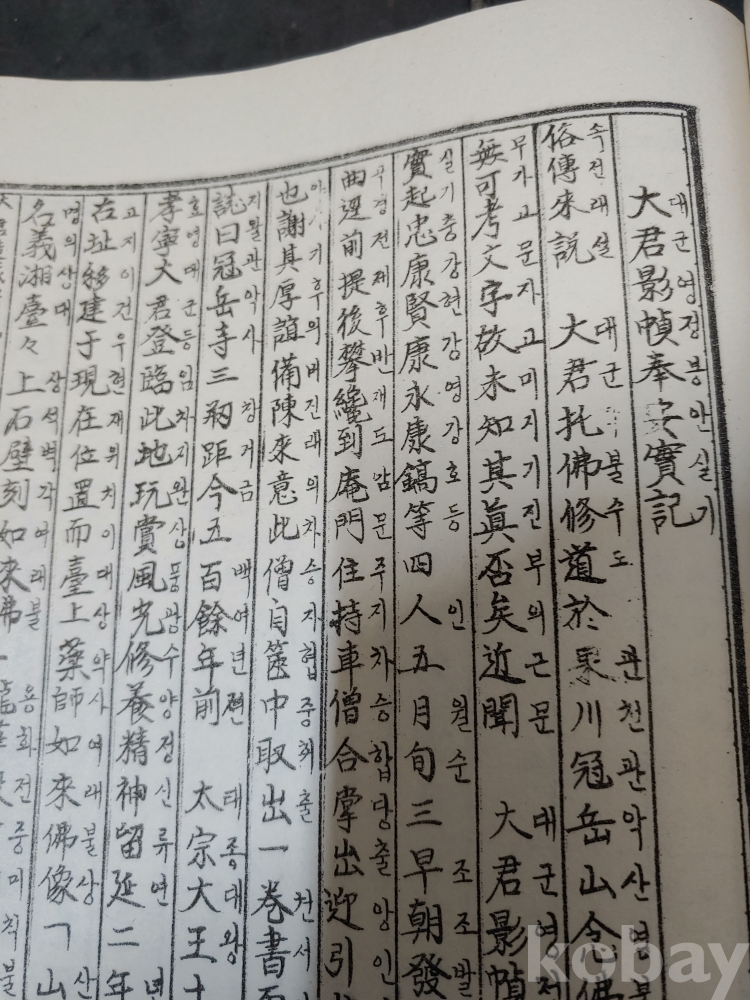 大君影幀奉安實記
대군영정봉안실기
俗傳來說 大君托佛修道於果川冠岳山念佛
속전래설 대군 불수도 관천관악산염불
無可考文字故未知其眞否矣近聞 大君影幀
무가고문자고미지기진부의근문 대군영정
實起忠康賢康永康鎬等四人五月旬三早朝發
실기충강현강영강호등 인 월순 조조발
曲逕前提後攀纔到庵門住持車僧合掌出迎引
경전제후반재도암문주지차승합당출앙인
也謝其厚誼備陳來意此僧自篋中取出一卷書
야 기후의비진래의차승자협중취출 천서
誌曰冠岳寺三刱距今五百餘年前 太宗大王十
지왈관악사 창거금 백여년전 태종대왕
孝寧大君登臨此地玩賞風光修養精神留延二年
효영대군등임차지완상풍광수양정신류연 년
在址移建于現在位置而臺上藥師如來佛像
고지이건우현재위치이대상약사여래불상
名義湘臺々上石壁刻如來佛
명의상대 상석벽각여래불 용화전중미륵불
kobay